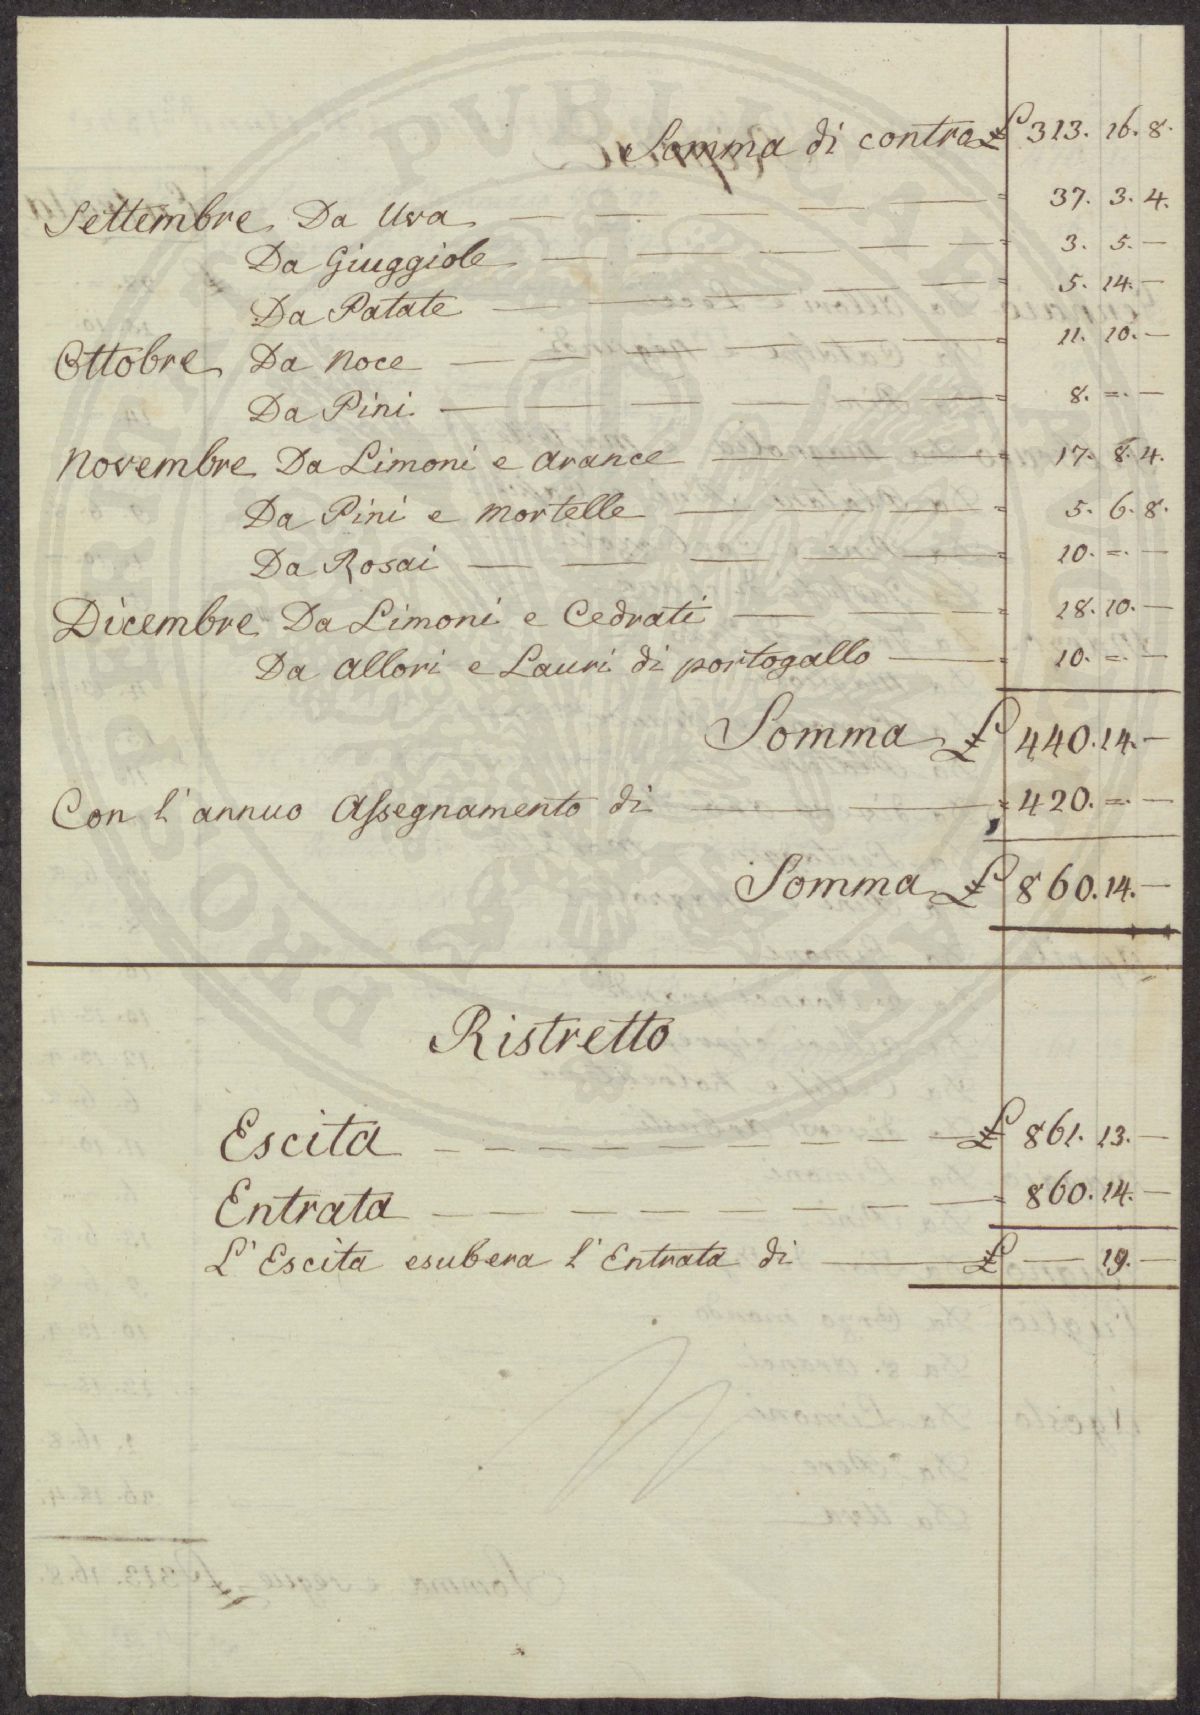 Somma di contra £ 313. 16. 8.
Settembre Da Uva — = 37. 3. 4.
Da Giuggiole — = 3. 5. —
Da Patate — = 5. 14. —
Ottobre Da Noce — = 11. 10. —
Da Pini — = 8. =. —
Novembre Da Limoni e Arance — = 17. 8. 4.
Da Pini e Mortelle — = 5. 6. 8.
Da Rosai — = 10. =. —
Dicembre Da Limoni e Cedrati — = 18. 10. —
Da Allori e Lauri di portogallo — = 10. =. —
Somma £ 440. 14. —
Con l'annuo Assegnamento di — = 420. =. —
Somma £ 860. 14. —
Ristretto
Escita — £ 861. 13. —
Entrata — = 860. 14. —
L'Escita esubera l'Entrata di — £ — 19. —